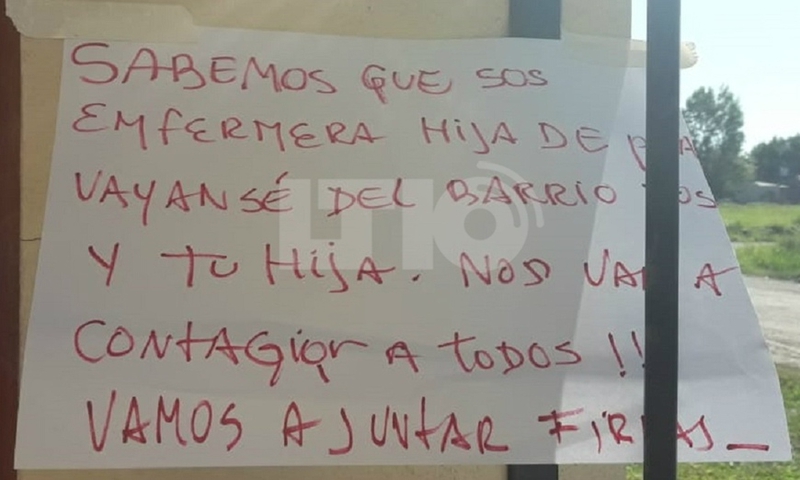 SABEMOS QUE SOS
EMFERMERA HIJA DE
VAYANSÉ DEL BARRIO
Y TU HIJA. NOS VAN A
CONTAGIAR A TODOS !!
VAMOS A JUNTAR FIRMAS_
LT10